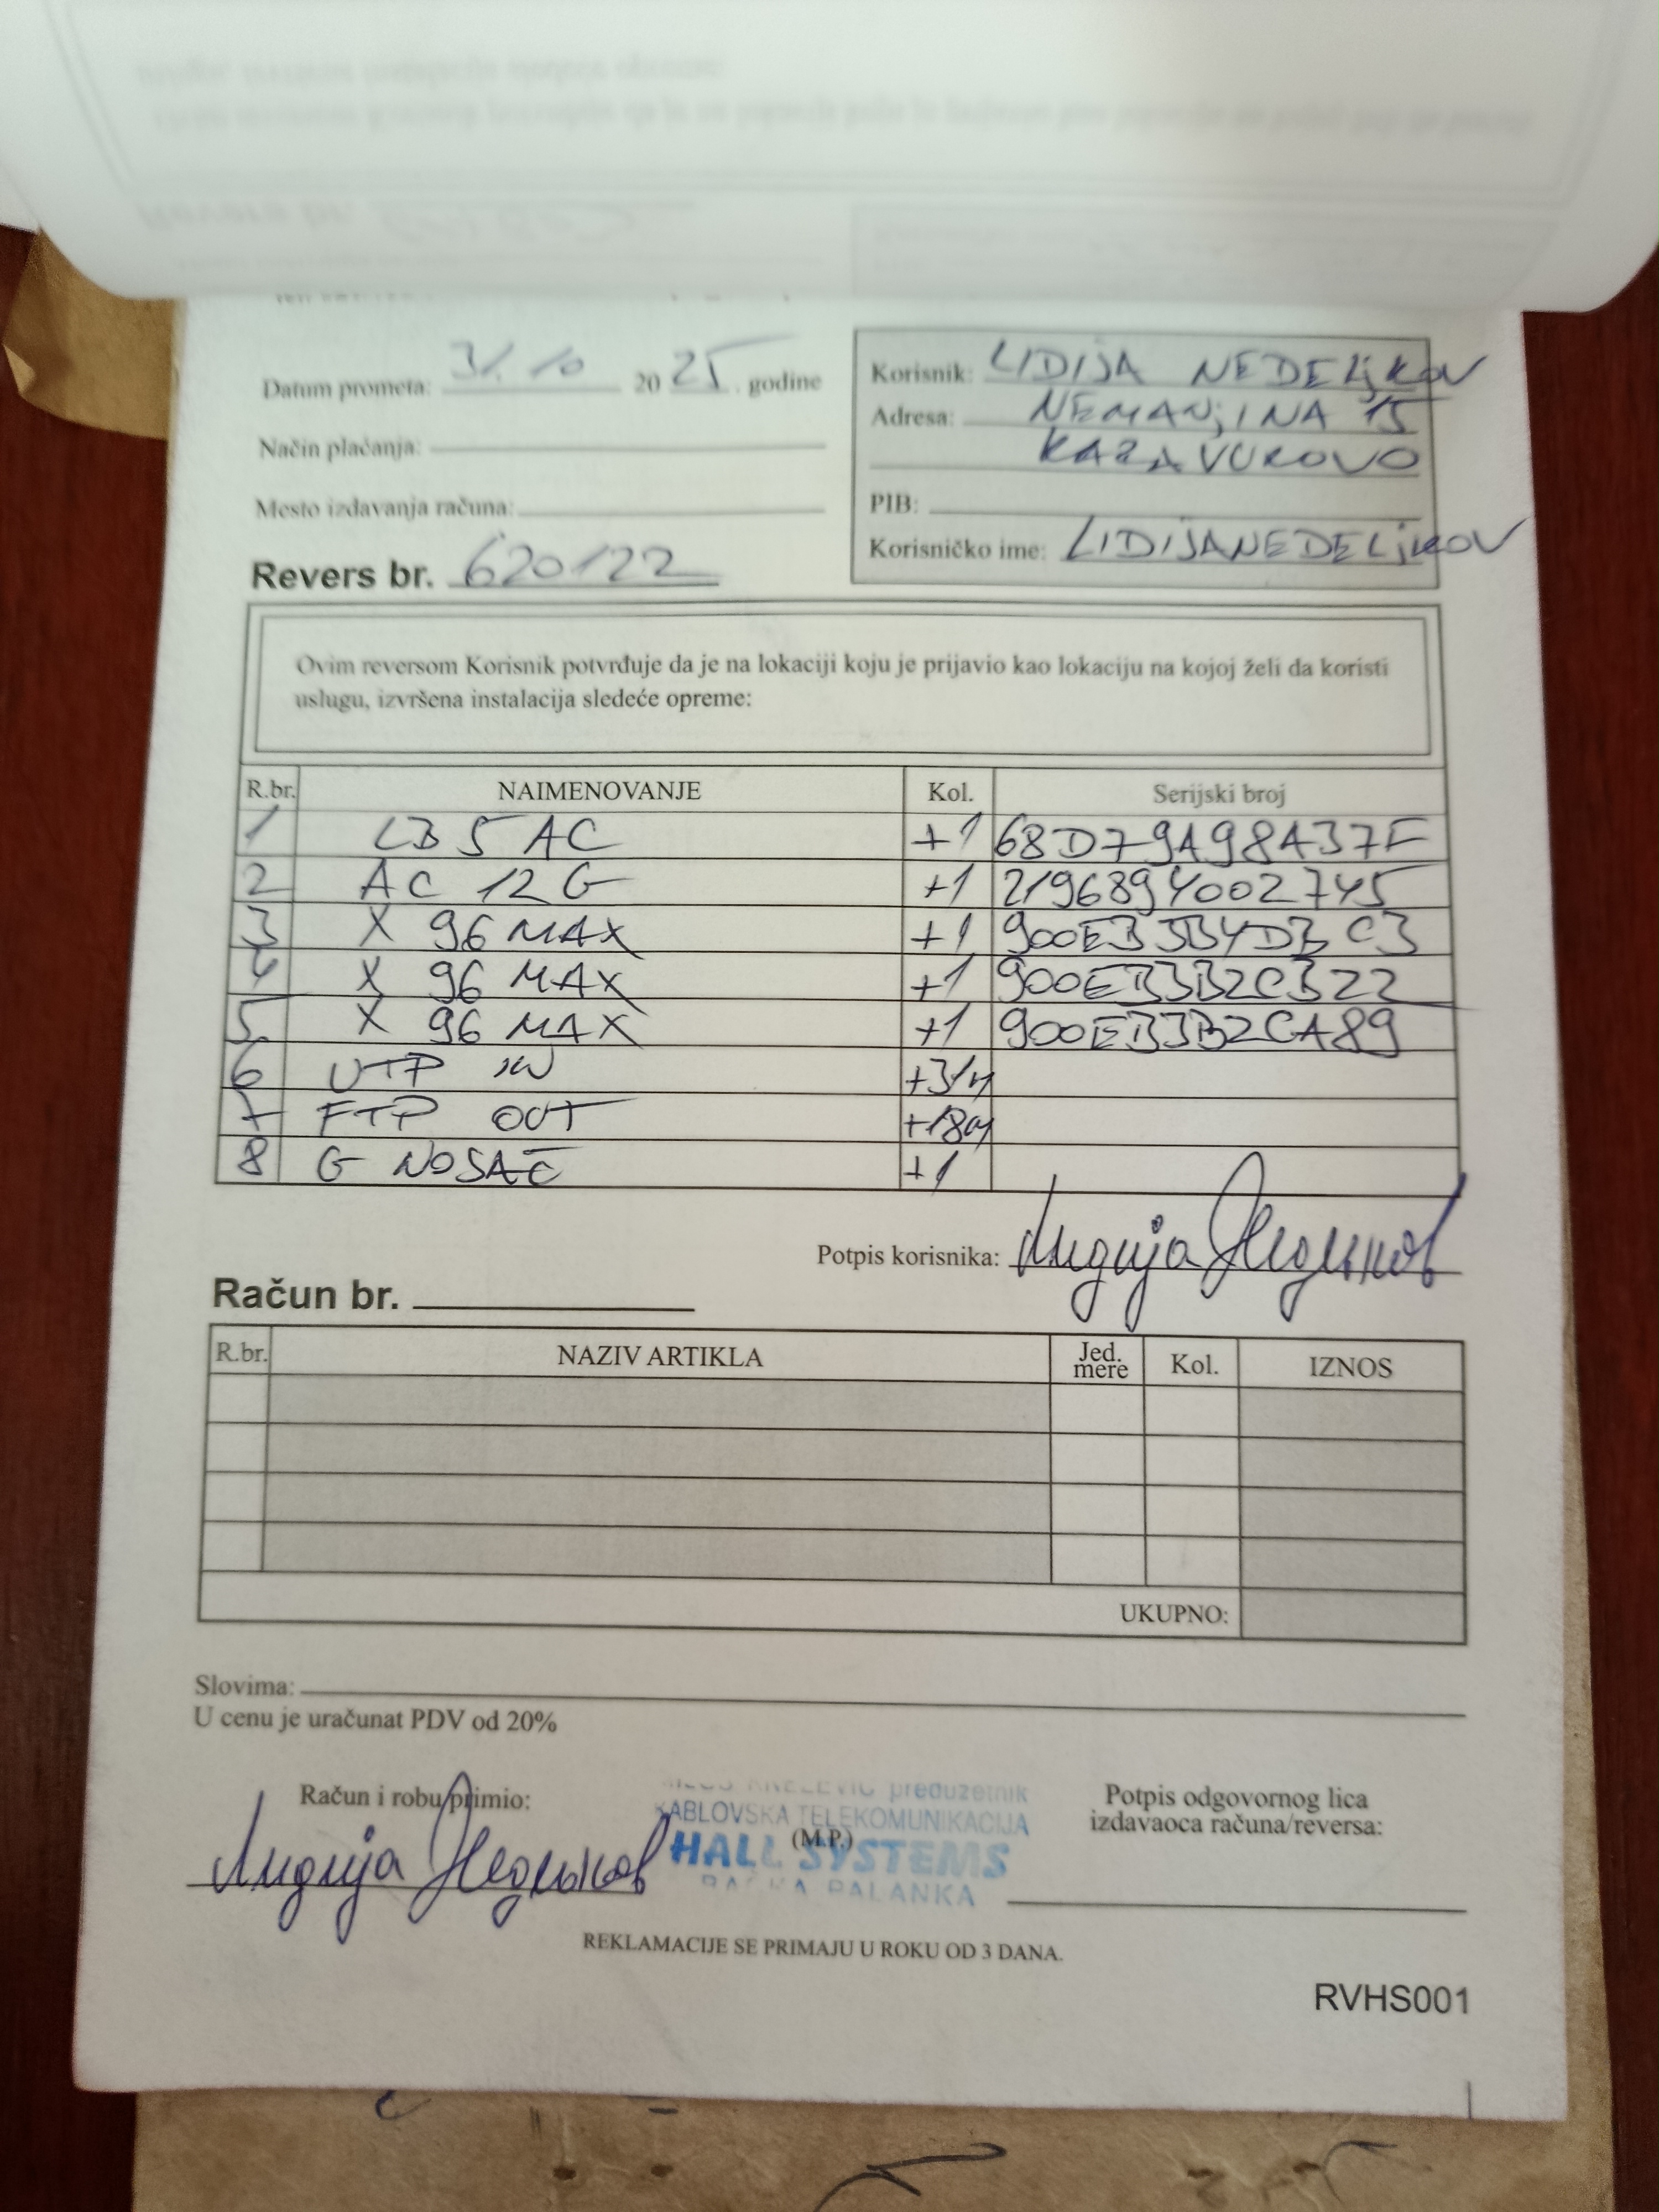 Datum prometa: 31. 10 2025. godine
Korisnik: LIDIJA NEDELjKOV
Adresa: NEMANjINA 15
KARAVUKOVO
Način plaćanja:
Mesto izdavanja računa:
PIB:
Korisničko ime: LIDIJANEDELjKOV
Revers br. 620122
Ovim reversom Korisnik potvrđuje da je na lokaciji koju je prijavio kao lokaciju na kojoj želi da koristi
uslugu, izvršena instalacija sledeće opreme:
R.br. NAIMENOVANJE Kol. Serijski broj
1 LB 5 AC +1 68D79A98A37F
2 AC 12 G +1 2196894002745
3 X 96 MAX +1 900EB3B4DBC3
4 X 96 MAX +1 900EB3B2CB22
5 X 96 MAX +1 900EB3B2CA89
6 UTP IN +31M
7 FTP OUT +18M
8 G NOSAČ +1
Potpis korisnika: Лидија Недељков
Račun br.
R.br. NAZIV ARTIKLA Jed. mere Kol. IZNOS
UKUPNO:
Slovima:
U cenu je uračunat PDV od 20%
Račun i robu primio:
Лидија Недељков
KNEŽEVIĆ preduzetnik
KABLOVSKA TELEKOMUNIKACIJA
(M.P.)
HALL SYSTEMS
BAČKA PALANKA
Potpis odgovornog lica
izdavaoca računa/reversa:
REKLAMACIJE SE PRIMAJU U ROKU OD 3 DANA.
RVHS001